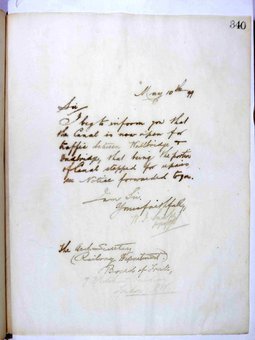 340
May 10th 99
Sir
I beg to inform you that
the Canal is now open for
traffic between Wallbridge &
that being the portion
of Canal stopped for repairs
Notice forwarded to you.
I am Sir,
Yours faithfully
The Secretary
(Railway Department)
Board of Trade,